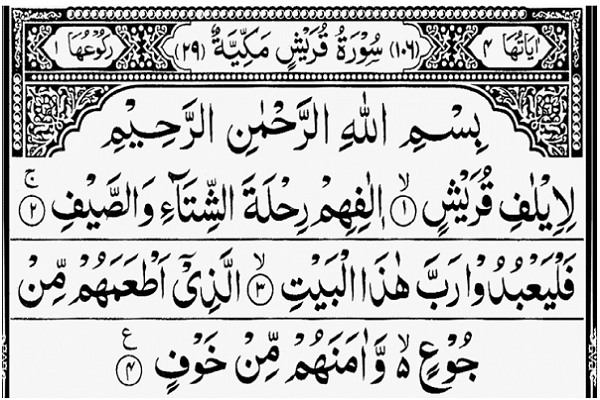 اٰيَاتُهَا ٤ (١٠٦) سُوْرَةُ قُرَيْشٍ مَكِّيَّةٌ (٢٩) رُكُوْعُهَا ١
بِسْمِ اللهِ الرَّحْمٰنِ الرَّحِيْمِ
لِاِيْلٰفِ قُرَيْشٍ ۙ‏﴿١﴾ اٖلٰفِهِمْ رِحْلَةَ الشِّتَآءِ وَالصَّيْفِ ۚ‏﴿٢﴾
فَلْيَعْبُدُوْا رَبَّ هٰذَا الْبَيْتِ ۙ‏﴿٣﴾ الَّذِيْٓ اَطْعَمَهُمْ مِّنْ
جُوْعٍ ۙ۵ وَّاٰمَنَهُمْ مِّنْ خَوْفٍ ﴿٤﴾ ع